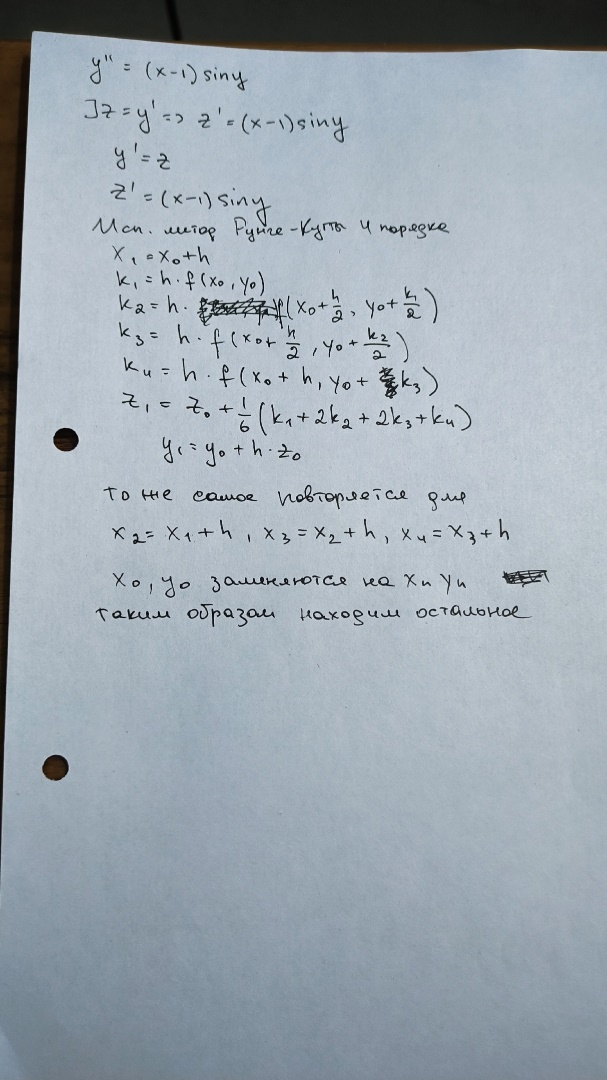 y'' = (x-1) siny
]z = y' => z' = (x-1) siny
y' = z
z' = (x-1) siny
Исп. метод Рунге-Кутты 4 порядка
x₁ = x₀+h
k₁ = h · f(x₀, y₀)
k₂ = h · f(x₀+h/2, y₀+k₁/2)
k₃ = h · f(x₀+h/2, y₀+k₂/2)
k₄ = h · f(x₀ + h, y₀ + k₃)
z₁ = z₀ + 1/6 (k₁ + 2k₂ + 2k₃ + k₄)
y₁ = y₀ + h · z₀
то же самое повторяется для
x₂ = x₁ + h, x₃ = x₂ + h, x₄ = x₃ + h
x₀, y₀ заменяются на xₙ yₙ
таким образом находим остальное